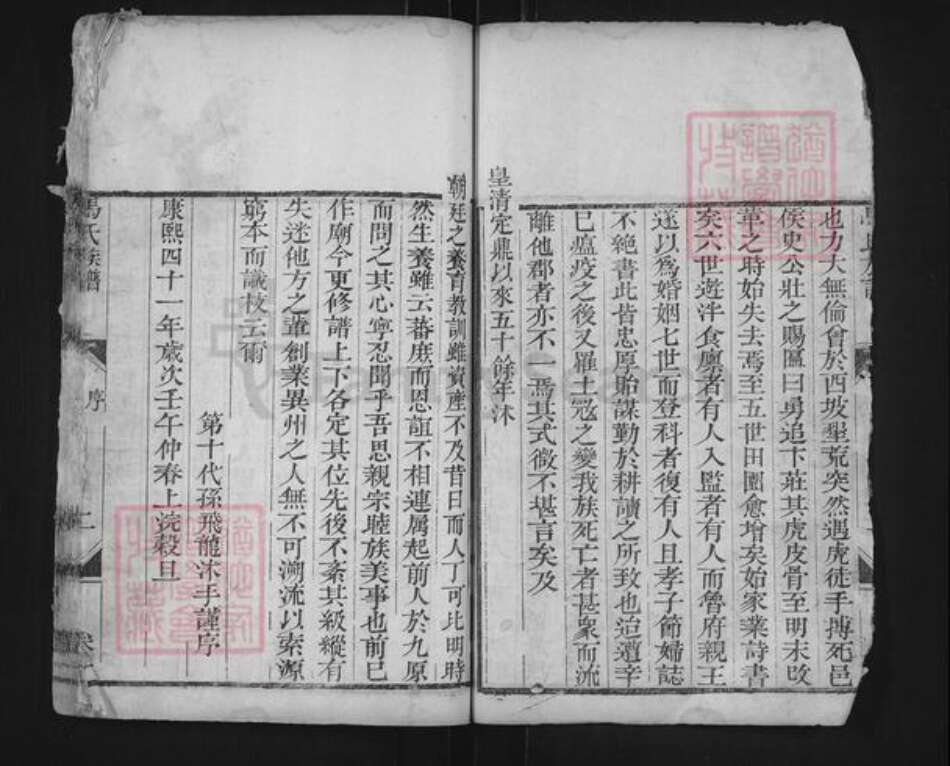 也力大無倫曾於西坡墾荒突然遇虎徒手搏死邑
侯史公壯之賜匾曰勇追卞莊其虎皮骨至明末改
革之時始失去焉至五世田園愈增矣始家業詩書
矣六世遊泮食廪者有人入監者有人而魯府親王
遂以為婚姻七世而登科者復有人且孝子節婦誌
不絶書此皆忠厚貽謀勤於耕讀之所致也迨遭辛
巳瘟疫之後又罹土寇之變我族死亡者甚衆而流
離他郡者亦不一焉其式微不堪言矣及
皇清定鼎以來五十餘年沐
朝廷之養育教訓雖資產不及昔日而人丁可比明時
然生養雖云蕃庶而恩誼不相連属起前人於九原
而問之其心寧忍聞乎吾思親宗睦族美事也前已
作廟今更修譜上下各定其位先後不紊其級縱有
失迷他方之輩創業異州之人無不可溯流以索源
窮本而識枝云爾
第十代孫飛龍沐手謹序
康熙四十一年歲次壬午仲春上浣穀旦
馬氏族譜
序
二
卷一